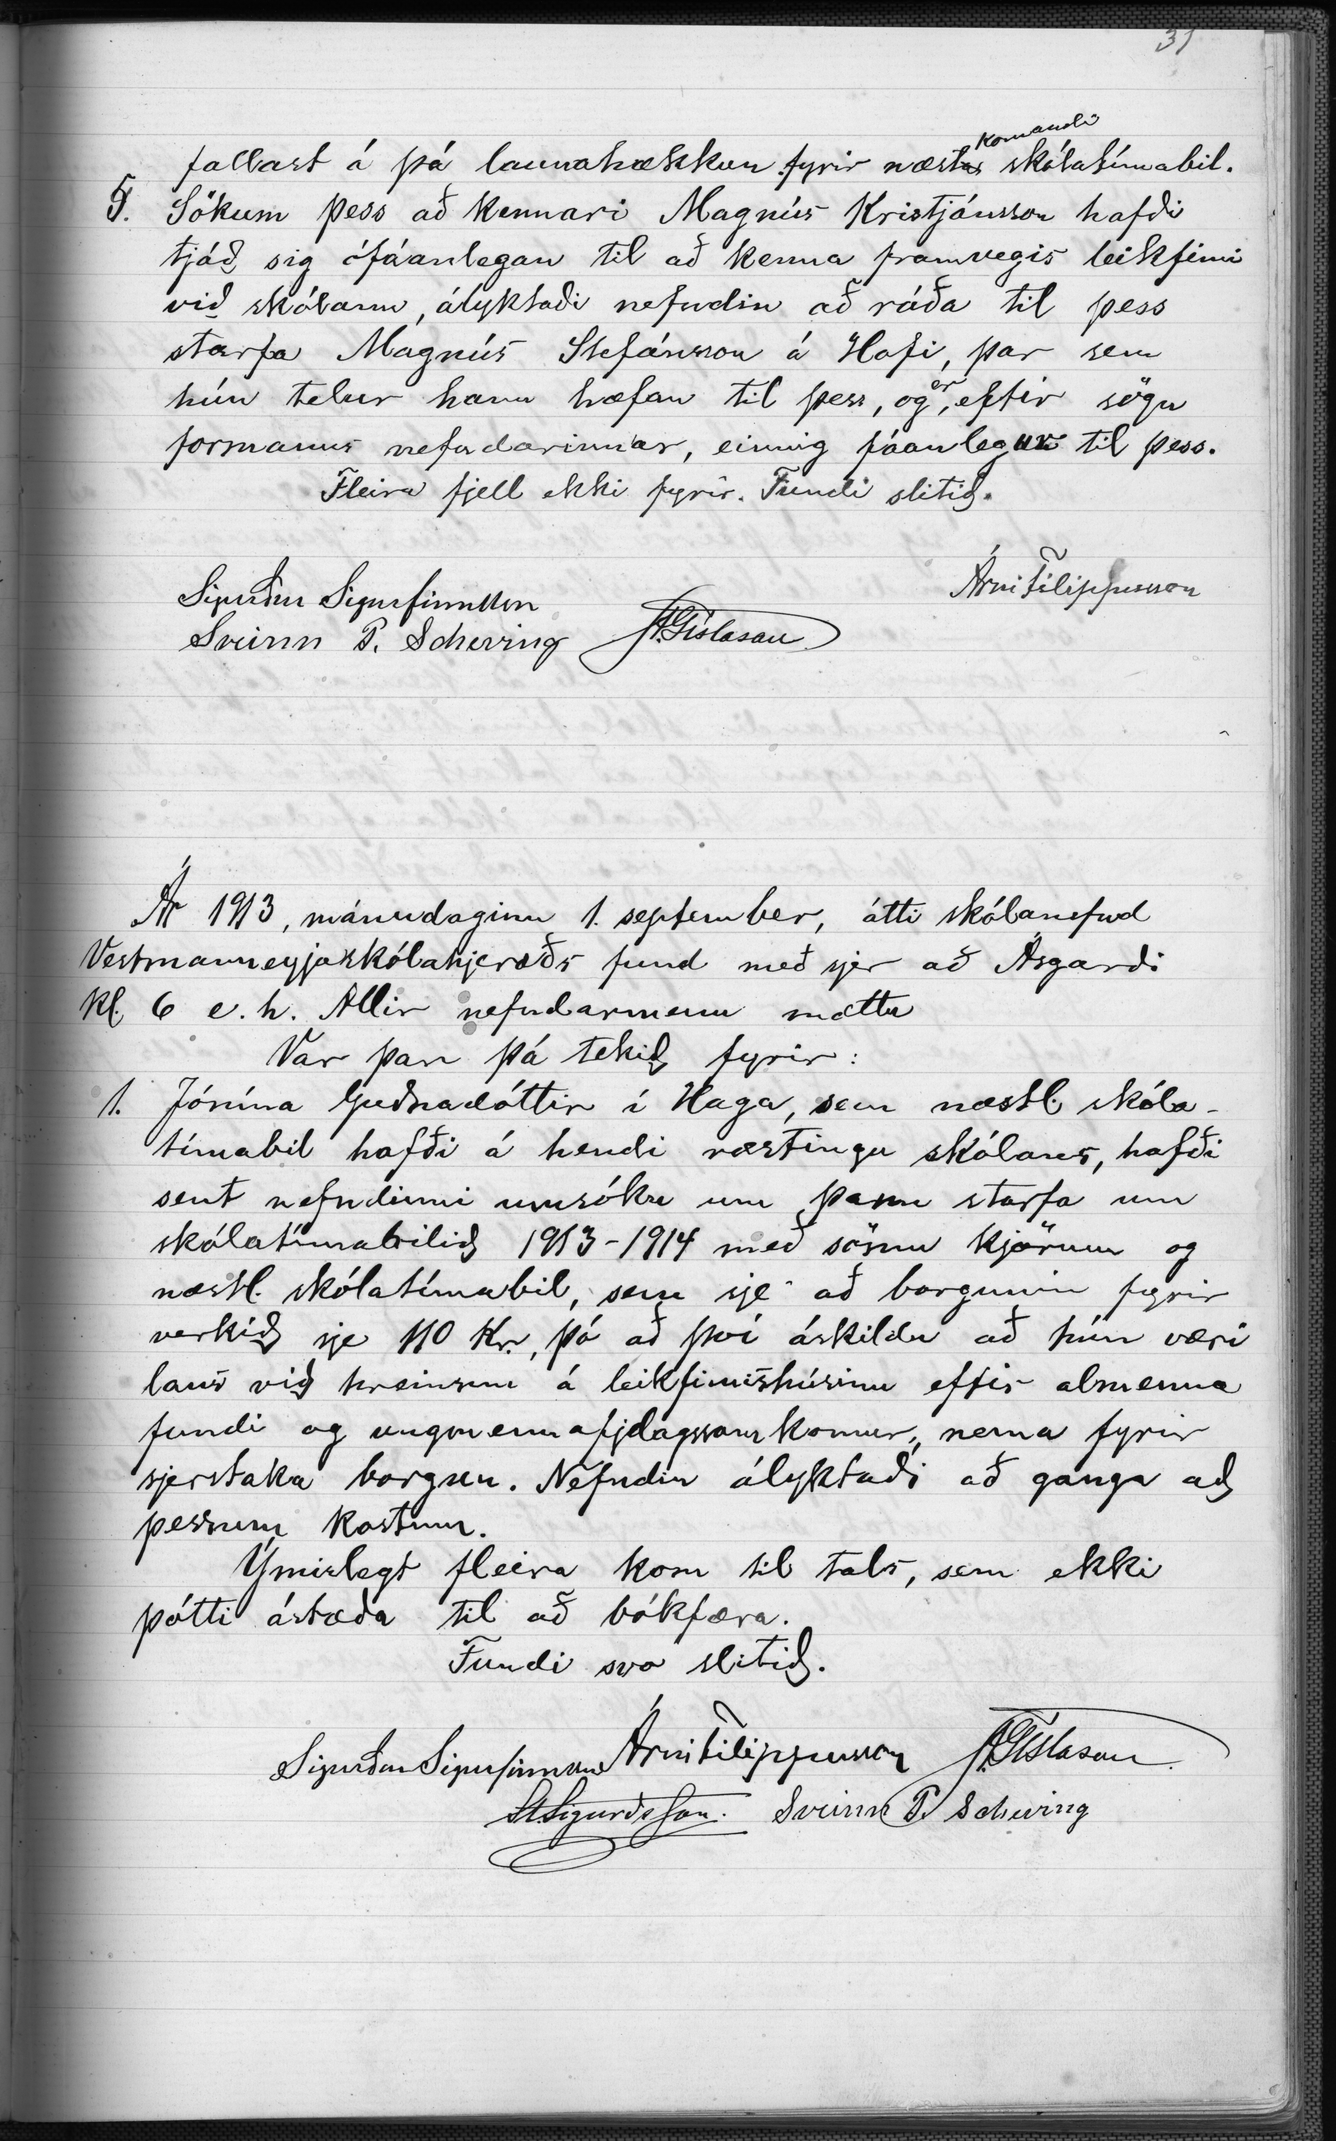 31
komandi
fallast á þá launahækkun fyrir næsta skólatímabil.
5. Sökum þess að kennari Magnús Kristjánsson hafði
tjáð sig ófáanlegan til að kenna framvegis leikfimi
við skólann, ályktaði nefndin að ráða til þess
starfa Magnús Stefánsson á Hofi, þar sem
hún telur hann hæfan til þess, og er, eftir sögn
formanns nefndarinnar, einnig fáanlegur til þess.
Fleira fjell ekki fyrir. Fundi slitið.
Árni Filippusson
Sigurður Sigurfinnsson
Sveinn P. Scheving Á. Gíslason
Ár 1913, mánudaginn 1. september, átti skólanefnd
Vestmanneyjaskólahjeraðs fund með sjer að Ásgarði
kl. 6 e. h. Allir nefndarmenn mættu
Var þar þá tekið fyrir:
1. Jónína Guðnadóttir í Haga, sem næstl. skóla-
tímabil hafði á hendi ræstingu skólans, hafði
sent nefndinni umsókn um þann starfa um
skólatímabilið 1913-1914 með sömu kjörum og
næstl. skólatímabil, sem sje að borgunin fyrir
verkið sje 110 kr., þó að því áskildu að hún væri
laus við hreinsun á leikfimishúsinu eftir almenna
fundi og ungmennafjelagssamkomur, nema fyrir
sjerstaka borgun. Nefndin ályktaði að ganga að
þessum kostum.
Ýmislegt fleira kom til tals, sem ekki
þótti ástæða til að bókfæra.
Fundi svo slitið.
Sigurður Sigurfinnsson Árni Filippusson Á. Gíslason
St. Sigurðsson. Sveinn P. Scheving